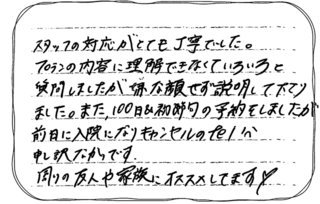 スタッフの対応がとても丁寧でした。
プランの内容に理解できなくていろいろと
質問しましたが嫌な顔せず説明して下さり
ました。また、100日&初節句の予約をしましたが
前日に入院になりキャンセルの
申し訳なかったです
周りの友人や家族にオススメしてます♡